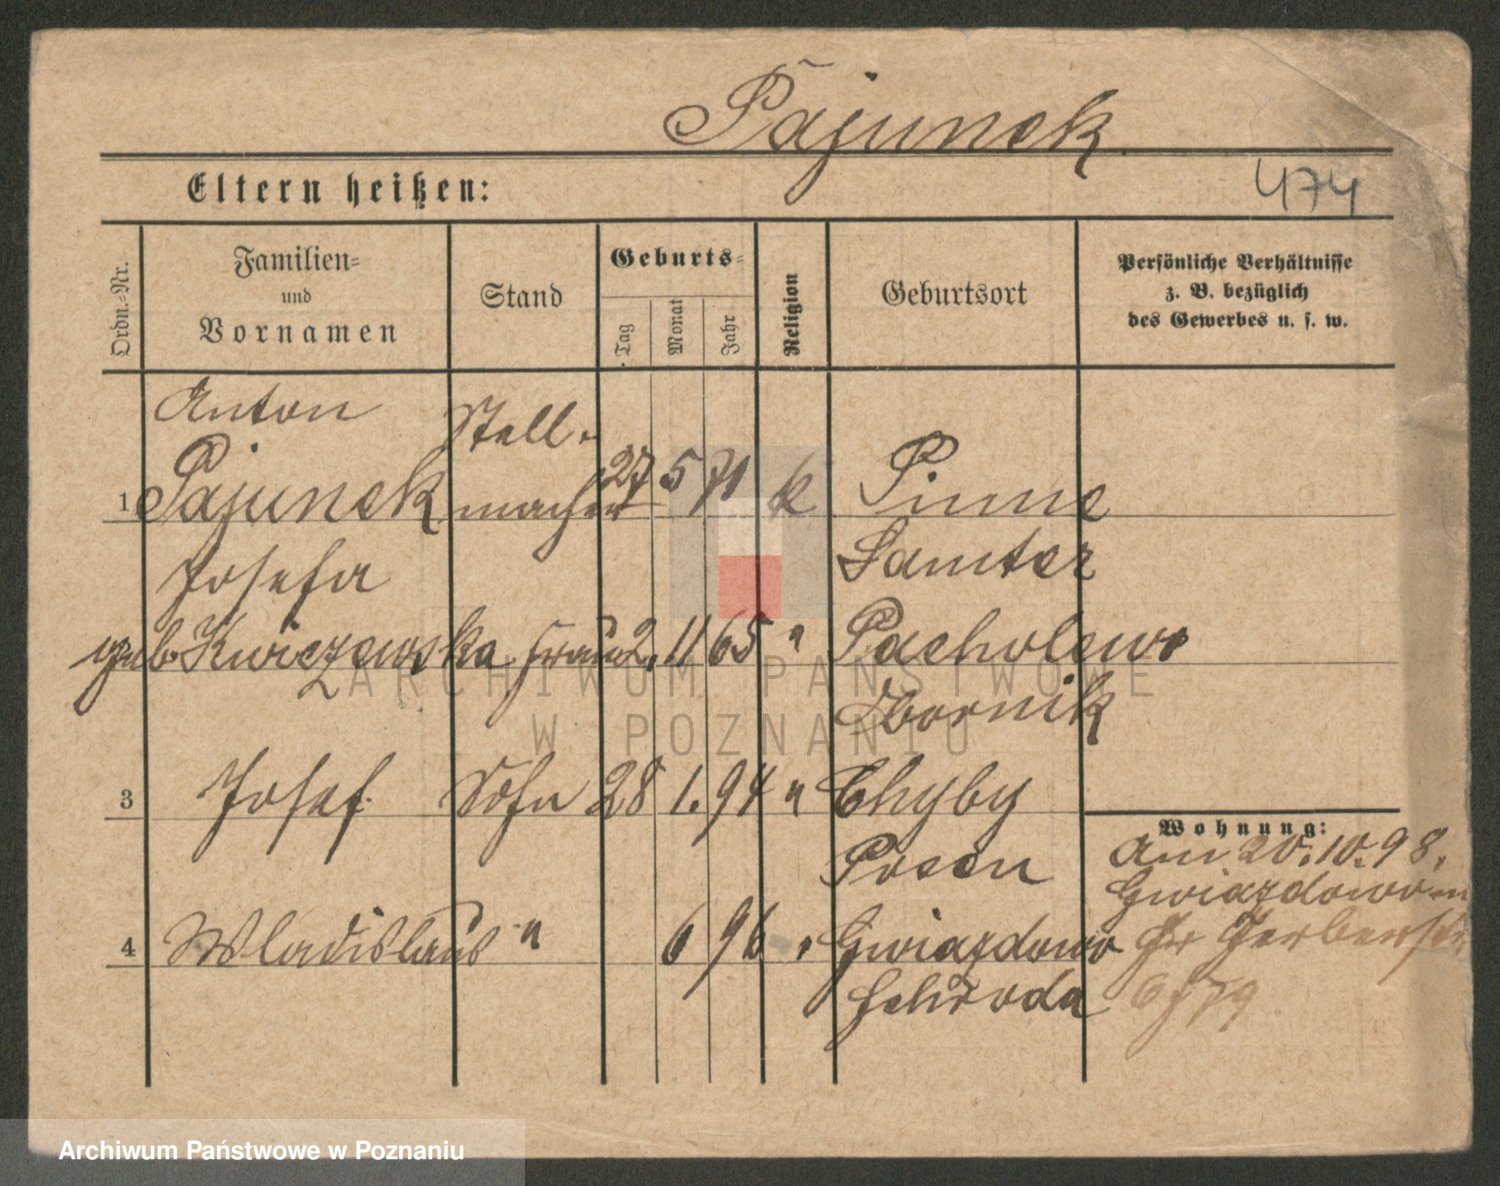 Pajunek
474
Eltern heißen:
Ordn.=Nr.
Familien=
und
Vornamen
Stand
Geburts=
Tag
Monat
Jahr
Religion
Geburtsort
Persönliche Verhältnisse
z. B. bezüglich
des Gewerbes u. s. w.
Anton Stell-
1 Pajunek macher 27 5 71 k Pinne
Josefa Samter
geb. Kwiczewska Frau 2. 11 65 " Pacholewo
Obornik
3 Josef Sohn 28 1. 94 " Chyby
Posen
4 Wladislaus " 6 96 " Gwiazdowo
Schroda
Wohnung:
Am 20.10.98.
Gwiazdowo
ARCHIWUM PAŃSTWOWE
W POZNANIU
Archiwum Państwowe w Poznaniu